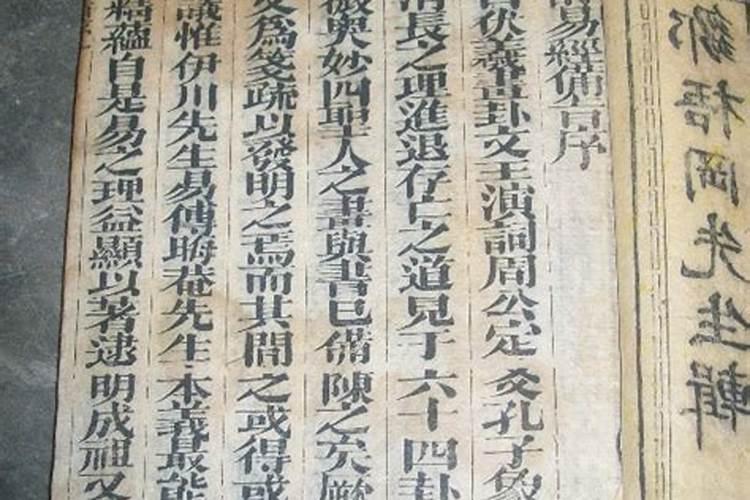 鄒梧岡先生輯
易經備旨序
昔伏羲畫卦文王演詞周公定爻孔子象
消長之理進退存亡之道見于六十四卦
微奥妙四聖人之書與書已備陳之矣厥
又為箋疏以發明之焉而其間之或得或
議惟伊川先生易傳晦菴先生本義最能
精蘊自是易之理益顯以著逮明成祖又